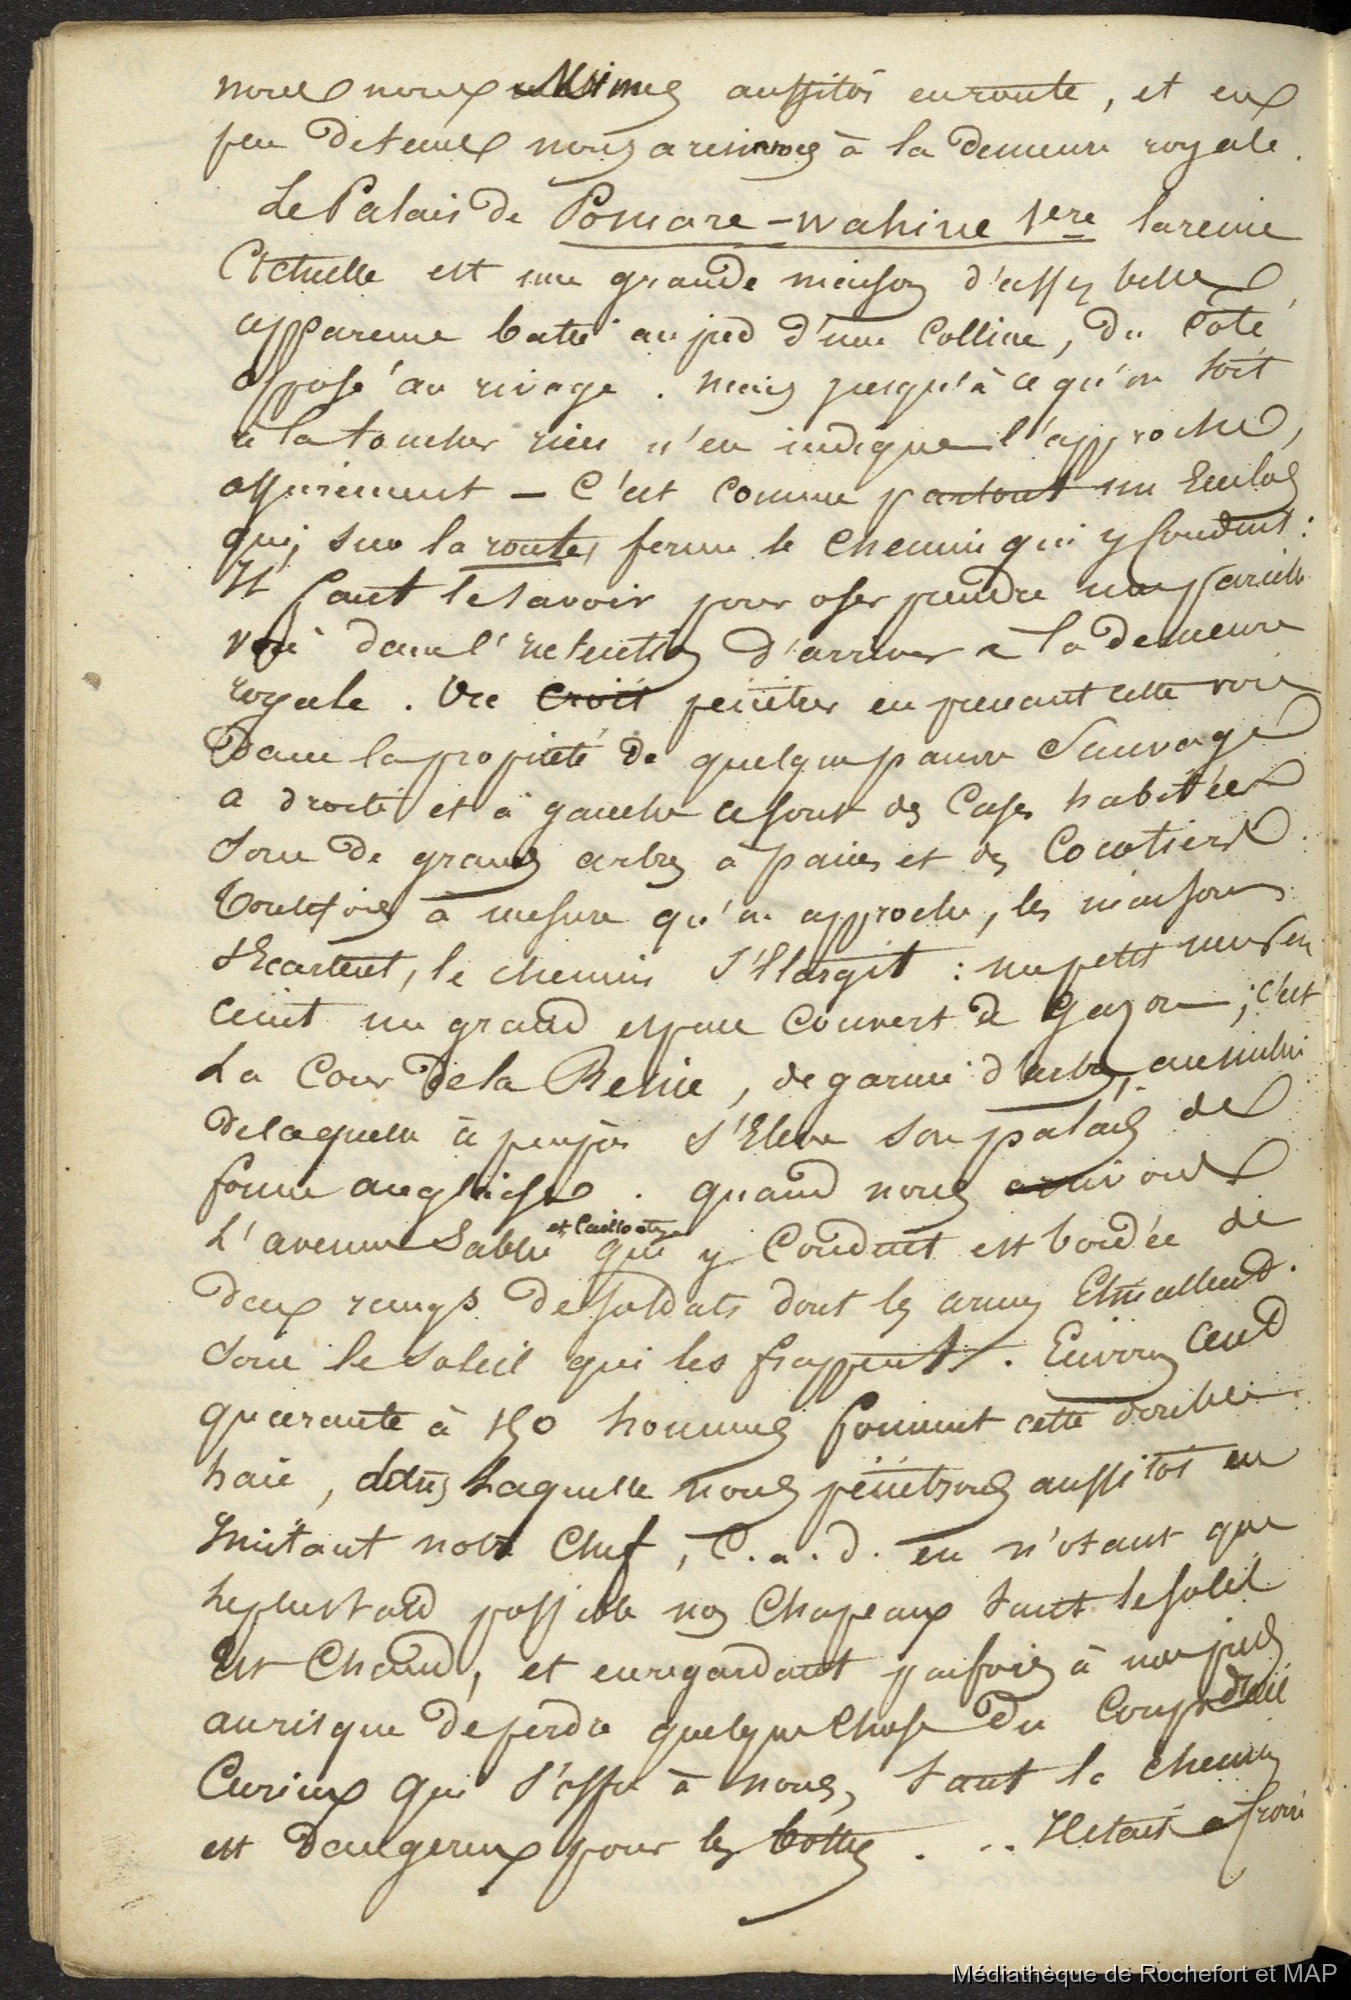 nous nous mimes aussitôt en route, et en
peu de tems nous arrivames à la demeure royale.
Le Palais de Pomare-wahine 1ere la reine
Actuelle est une grande maison d'assez belle
apparence batie au pied d'une Colline, du Coté
opposé au rivage. mais jusqu'à ce qu'on soit
à la toucher rien n'en indique l'approche,
assurément — C'est comme partout un Enclos
qui, sur la route, ferme le chemin qui y Conduit :
Il faut le savoir pour oser prendre une pareille
voie dans l'intention d'arriver à la demeure
royale. On croit pénétrer en prenant cette voie
Dans la propriété de quelque pauvre Sauvage
a droite et à gauche ce sont des Cases habitées
sous de grands arbres à pain et des Cocotiers.
Toutefois à mesure qu'on approche, les maisons
s'Ecartent, le chemin s'Elargit : un petit mur en
ceint un grand espace Couvert de gazon ; c'est
La Cour de la Reine, degarnie d'arbres, au milieu
de laquelle à peu près s'Elève son palais de
forme anglaise. quand nous arrivons
L'avenue Sablée et Cailloutée qui y Conduit est bordée de
deux rangs de soldats dont les armes Etincellent
sous le soleil qui les frappent. Environ Cent
quarante à 150 hommes forment cette double
haie, dans laquelle nous pénétrons aussitôt en
Imitant notre Chef, C.a.d. en n'otant que
le plus tard possible nos Chapeaux tant le soleil
Est Chaud, et en regardant parfois à nos pieds
au risque de perdre quelque chose du Coup d'œil
Curieux qui s'offre à nous, tant le chemin
est dangereux pour les bottes. .. Il etait à
Médiathèque de Rochefort et MAP